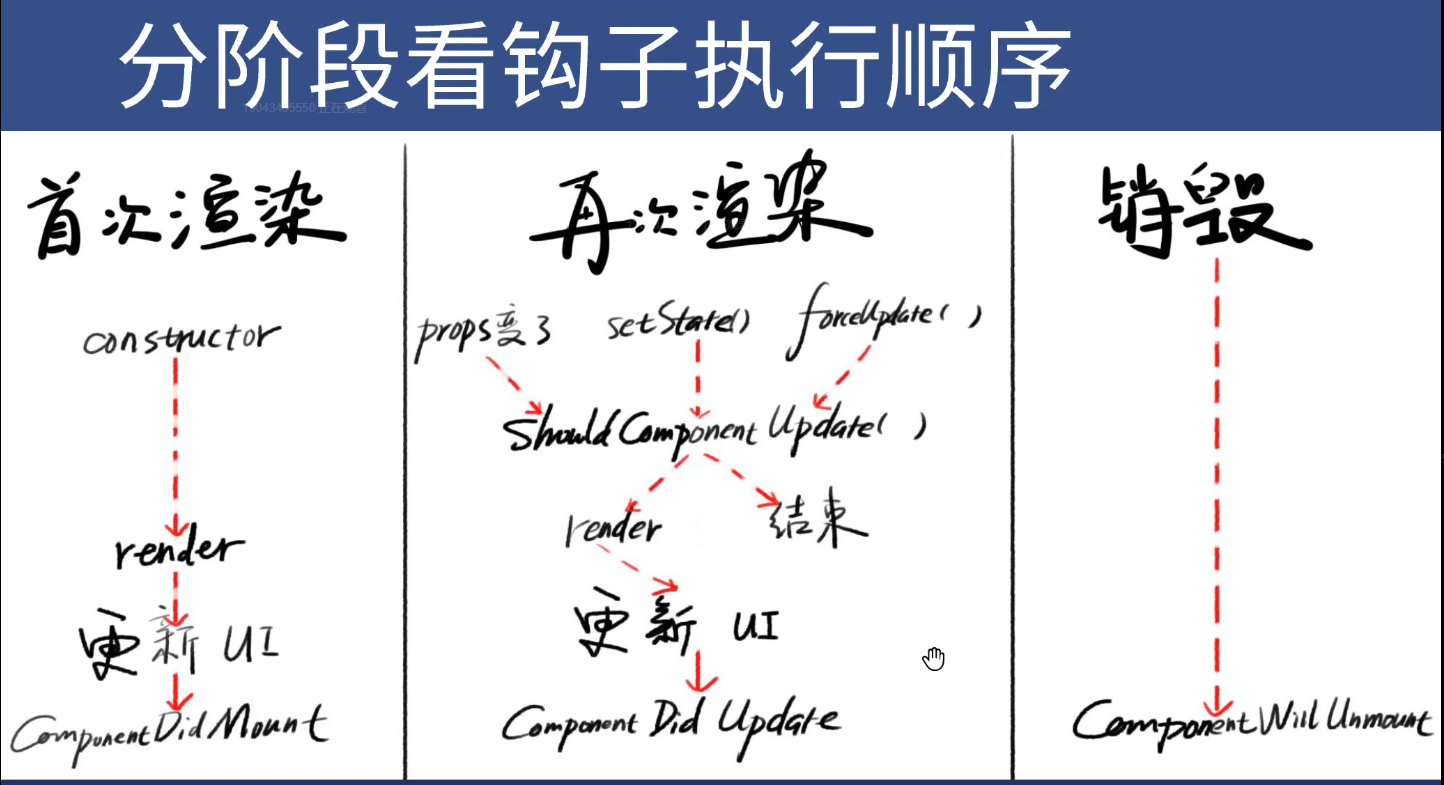 分阶段看钩子执行顺序
首次渲染
constructor
render
更新 UI
ComponentDidMount
再次渲染
props变了 setState() forceUpdate( )
ShouldComponentUpdate( )
render 结束
更新 UI
Component Did Update
销毁
ComponentWillUnmount